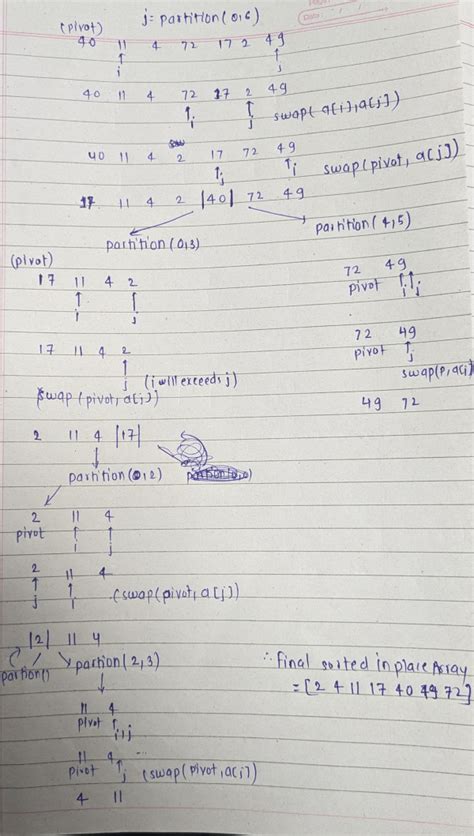 j = partition(0,6)
(pivot)
40 11 4 72 17 2 49
i j
40 11 4 72 17 2 49
i j swap(a[i],a[j])
40 11 4 2 17 72 49
j i swap(pivot, a[j])
17 11 4 2 |40| 72 49
partition(0,3) partition(4,5)
(pivot)
17 11 4 2
i j
72 49
pivot i j
17 11 4 2
j (i will exceeds j)
swap(pivot, a[j])
72 49
pivot j
swap(P,a[j])
49 72
2 11 4 |17|
partition(0,2)
2 11 4
pivot i j
2 11 4
j i (swap(pivot, a[j])
|2| 11 4
partion() partion(2,3)
11 4
pivot i,j
11 4
pivot j (swap(pivot,a[j])
4 11
∴ final sorted inplace Array
= [2 4 11 17 40 49 72]